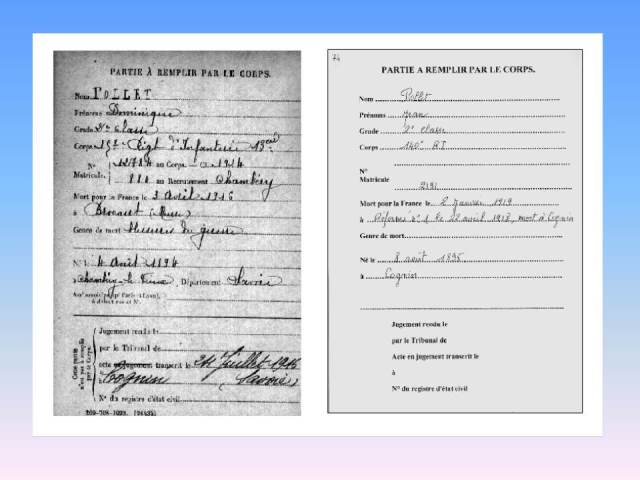 PARTIE À REMPLIR PAR LE CORPS.
Nom POLLET
Prénoms Dominique
Grade 2e Classe
Corps 15e Régt d'Infanterie
N° 12714 au Corps. — Cl. 1914
Matricule. 111 au Recrutement Chambéry
Mort pour la France le 3 Avril 1916
à Brocourt (Meuse)
Genre de mort Blessures de guerre
Né le 4 Avril 1894
à Chambéry-le-Vieux Département Savoie
Jugement rendu le
par le Tribunal de
acte ou jugement transcrit le 24 Juillet 1916
à Cognin (Savoie)
N° du registre d'état civil
Cette partie n'est pas à remplir par le Corps.
74
PARTIE A REMPLIR PAR LE CORPS.
Nom Pollet
Prénoms Jean
Grade 2e classe
Corps 140e R I
N°
Matricule
2191
Mort pour la France le 2 Janvier 1919
à Réformé n° 1 le 22 avril 1918, mort à Cognin
Genre de mort
Né le 8 août 1895
à Cognin
Jugement rendu le
par le Tribunal de
Acte en jugement transcrit le
à
N° du registre d'état civil